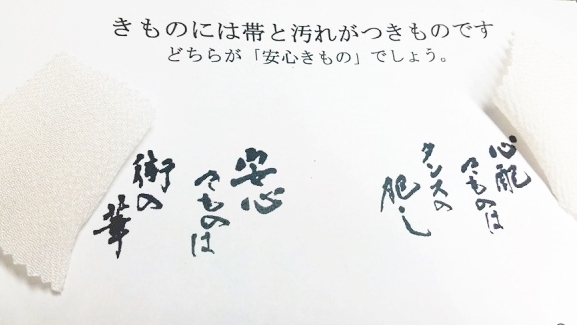 きものには帯と汚れがつきものです
どちらが「安心きもの」でしょう。
心配
きものは
タンスの
肥し
安心
きものは
街の
華